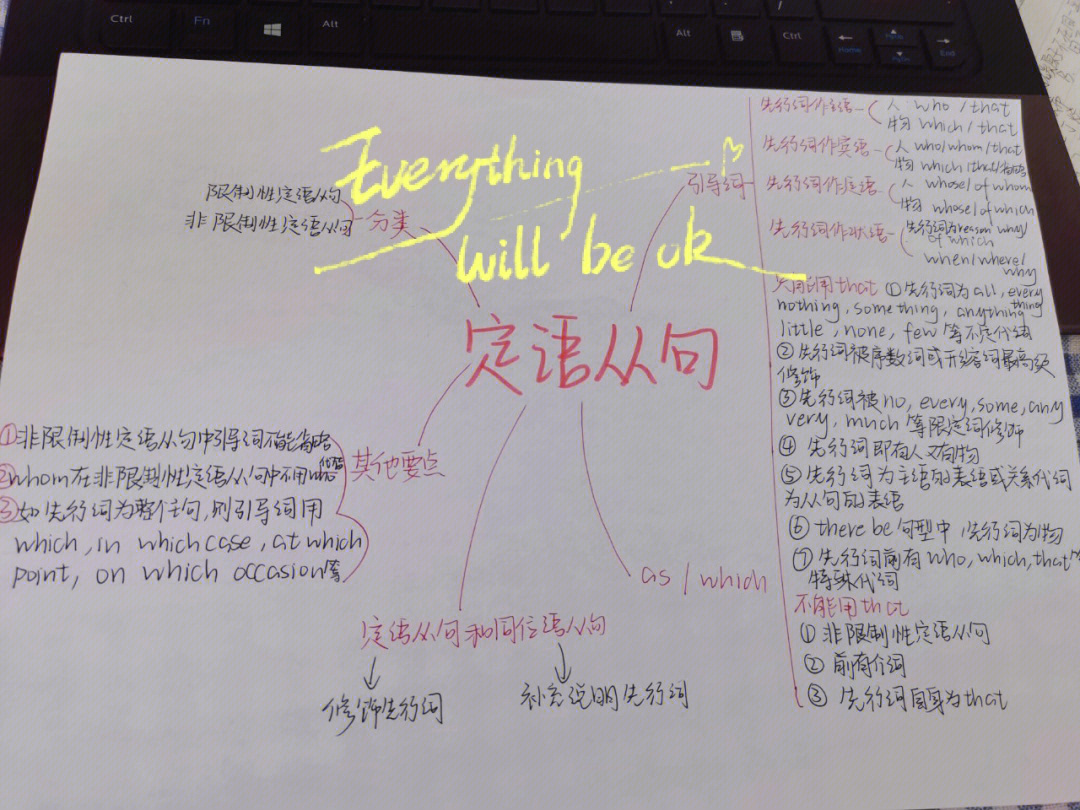 Ctrl
Fn
Alt
Alt
Ctrl
Home
End
Everything
will be ok
定语从句
分类
限制性定语从句
非限制性定语从句
引导词
先行词作主语
人 who / that
物 which / that
先行词作宾语
人 who/whom/that
物 which/that/
先行词作定语
人 whose/of whom
物 whose/of which
先行词作状语
先行词为reason why/
of which
when/where/
why
只能用that ①先行词为all, every
thing
nothing, something, anything
little, none, few 等不定代词
②先行词被序数词或形容词最高级
修饰
③先行词被no, every, some, any
very, much 等限定词修饰
④ 先行词即有人又有物
⑤先行词为主语的表语或关系代词
为从句的表语
⑥ there be句型中,先行词为物
⑦先行词前有who, which, that等
特殊代词
不能用that
① 非限制性定语从句
② 前有介词
③ 先行词自身为that
其他要点
①非限制性定语从句中引导词不能省略
②whom在非限制性定语从句中不用who
③如先行词为整个句,则引导词用
which, in which case, at which
point, on which occasion等
as / which
定语从句和同位语从句
修饰先行词
补充说明先行词